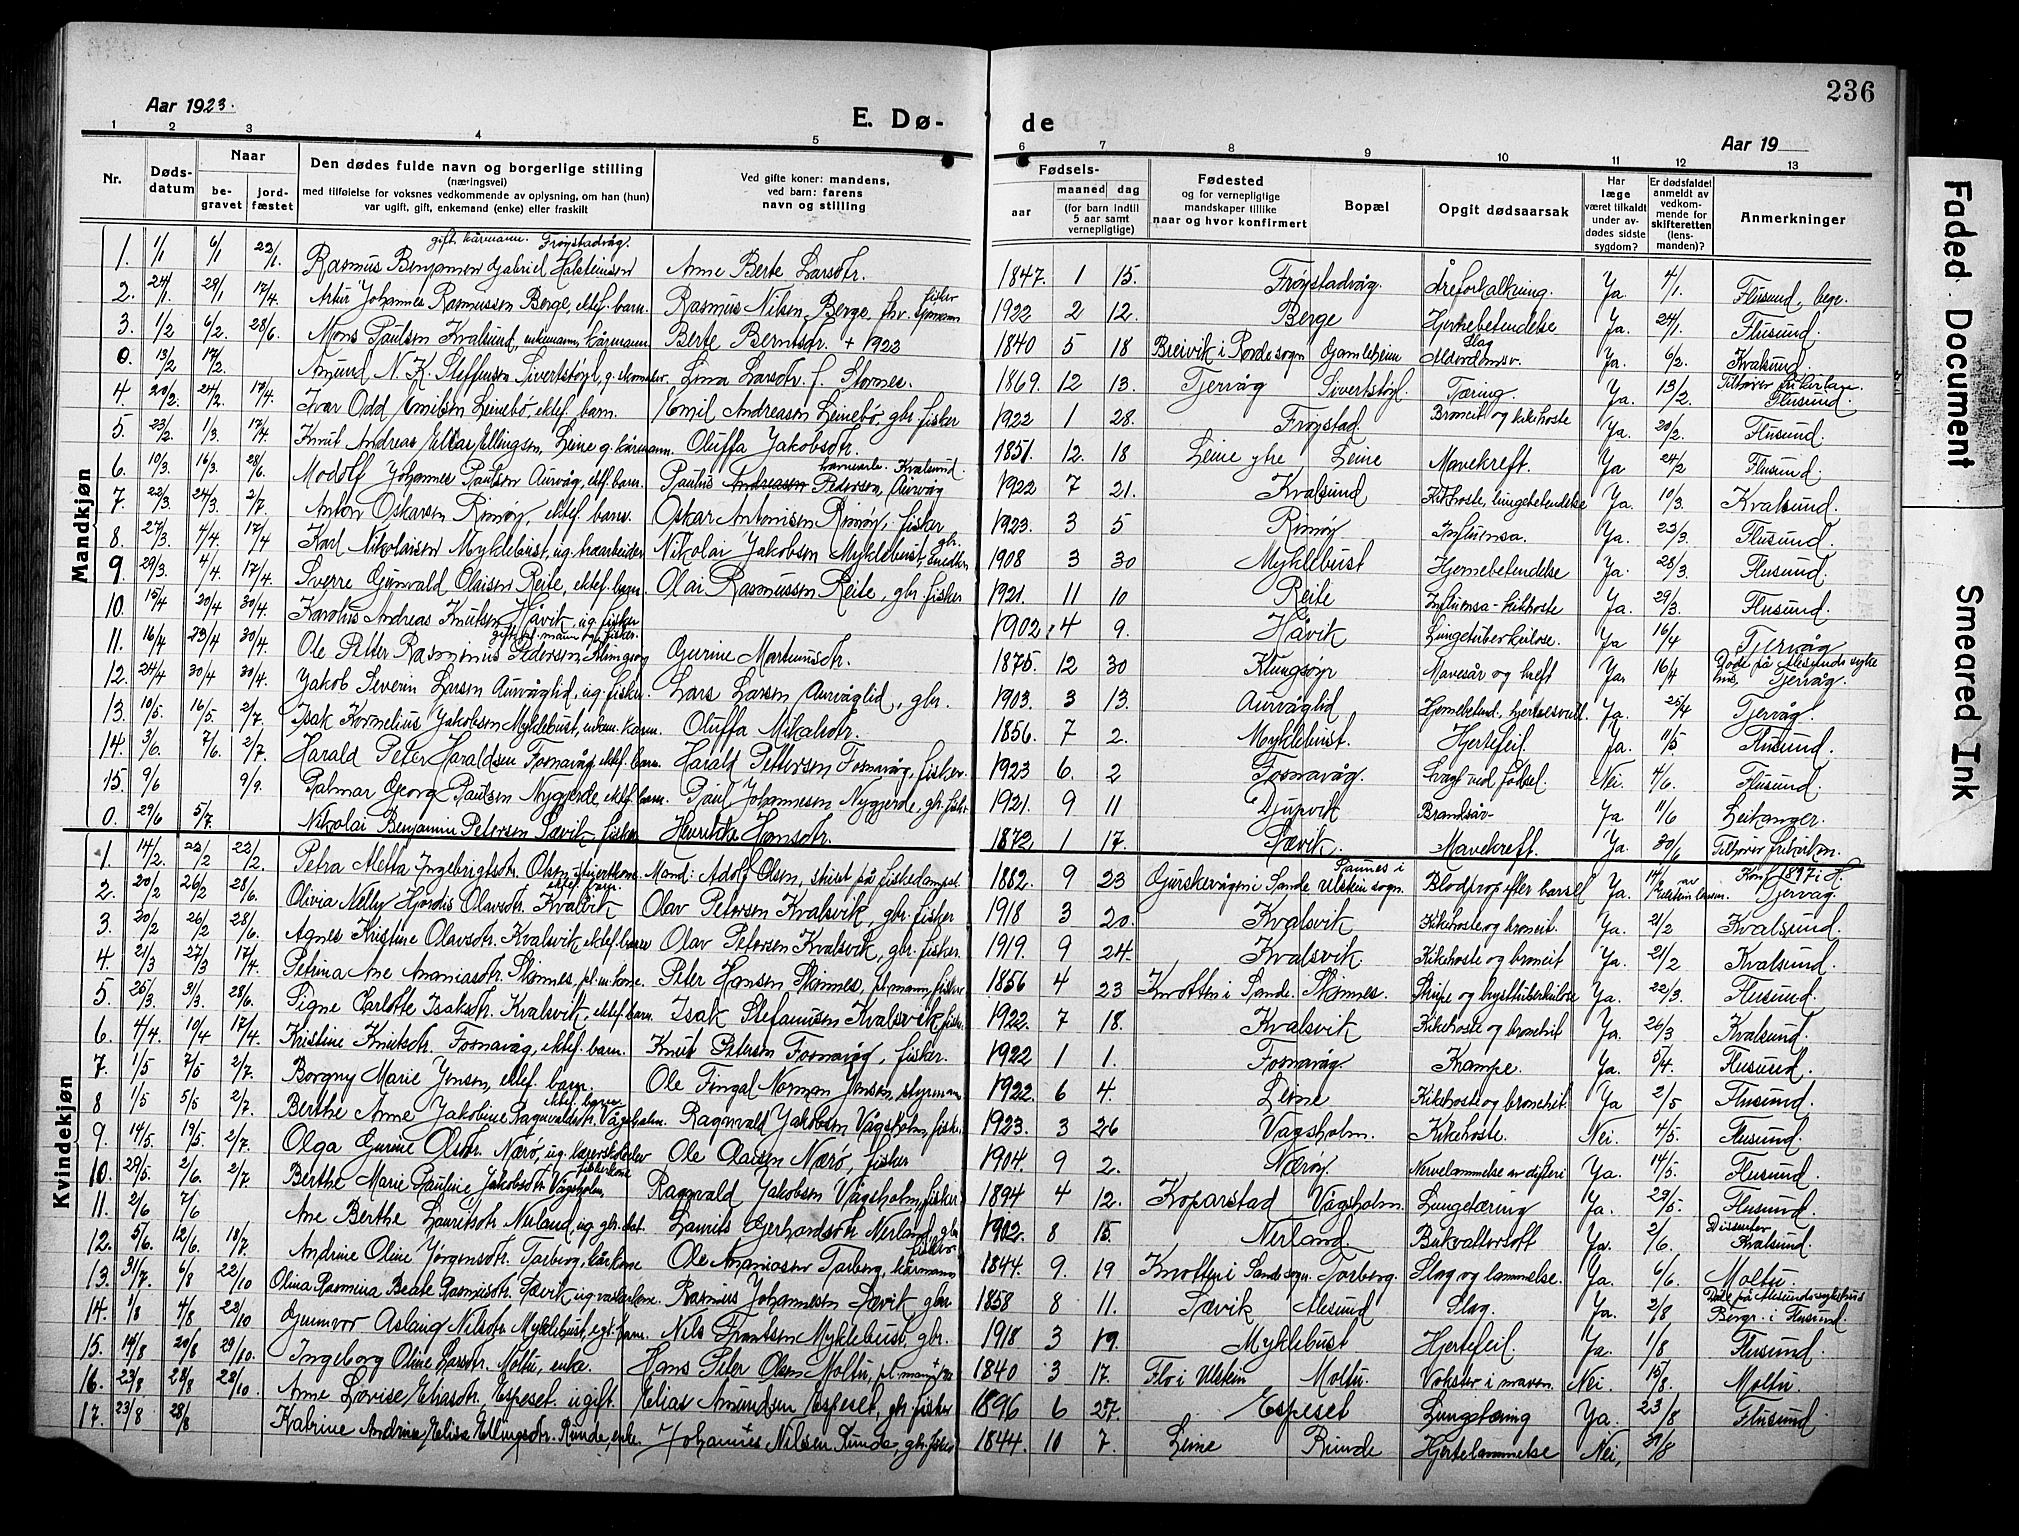 236
Aar 1923.
E. Dø-
de
Aar 19
1 2 3 4 5 6 7 8 9 10 11 12 13
Nr.
Døds-
datum
Naar
be-
gravet
jord-
fæstet
Den dødes fulde navn og borgerlige stilling
(næringsvei)
med tilføielse for voksnes vedkommende av oplysning, om han (hun)
var ugift, gift, enkemand (enke) eller fraskilt
Ved gifte koner: mandens,
ved barn: farens
navn og stilling
Fødsels-
aar
maaned
dag
(for barn indtil
5 aar samt
vernepligtige)
Fødested
og for vernepligtige
mandskaper tillike
naar og hvor konfirmert
Bopæl
Opgit dødsaarsak
Har
læge
været tilkaldt
under av-
dødes sidste
sygdom?
Er dødsfaldet
anmeldt av
vedkom-
mende for
skifteretten
(lens-
manden)?
Anmerkninger
Mandkjøn
gift kårmann. Frøystadvåg.
1. 1/1 6/1 22/1. Rasmus Benjamen Gabriel Holstensen Anne Berte Larsdtr. 1847. 1 15. Frøystadvåg. Åreforkalkning. Ja. 4/1. Flusund, bege.
2. 24/1. 29/1 17/4. Artur Johannes Rasmussen Berge, ektef. barn. Rasmus Nilsen Berge, fhv. fisker 1922 2 12. Berge Hjernebetendelse Ja. 24/1. Flusund.
3. 1/2 6/2 28/6. Mons Paulsen Kvalsund, enkemann, kårmann. Berte Berntsdtr. + 1922 1840 5 18 Breivik i Rovdesogn Gamleheim Slag Alderdomsv. Ja. 6/2. Kvalsund
0. 13/2 17/2. Amund N. K. Steffensen Sivertstøyl, g. Lina Larsdtr. f. Stornes. 1869. 12 13. Tjervåg Sivertstøyl Tæring. Ja. 13/2. Tilhører frikirken. Flusund.
4. 20/2. 24/2. 17/4. Ivar Odd Emilsen Leinebø, ektef. barn. Emil Andreasen Leinebø, gbr. fisker 1922 1 28. Frøystad. Bronkit og kikehoste Ja. 20/2. Flusund.
5. 23/2. 1/3. 17/4 Knut Andreas Elias Ellingsen, Leine g. kårmann. Oluffa Jakobsdtr. 1851. 12. 18 Leine ytre Leine Mavekreft. Ja 24/2 Flusund.
6. 10/3. 16/3. 28/6. Modolf Johannes Paulsen Aurvåg, ektef. barn. Paulus Andreasen Pedersen, Aurvåg Kvalsund. 1922 7 21. Kvalsund Kikhoste, lungebetendelse Ja 10/3. Kvalsund.
7. 22/3. 24/3. 2/7. Anton Oskarsen Rimøy, ektef. barn. Oskar Antonisen Rimøy, fisker 1923. 3 5 Rimøy Influensa. Ja. 23/3. Flusund.
8. 27/3. 4/4. 17/4 Karl Nikolaisen Myklebust, ug. Nikolai Jakobsen Myklebust, gbr. Snedker 1908 3 30 Myklebust Hjernebetendelse Ja. 28/3. Flusund.
9. 29/3. 4/4 17/4. Sverre Gunvald Olaisen Reite, ektef. barn. Olai Rasmussen Reite, gbr. fisker 1921. 11 10 Reite Influensa - kikhoste Ja. 29/3. Flusund.
10. 15/4 20/4 30/4. Karolus Andreas Knutsen, Håvik, ug. fisker 1902 4 9. Håvik Lungetuberkulose. Ja 16/4 Tjervåg
gift
11. 16/4 23/4 30/4. Ole Peter Rasmus Pedersen Gurine Martinusdtr. 1875. 12 30 Klungsøyr Mavesår og kreft Ja. 16/4 Døde på Ålesunds syke hus, Tjervåg.
12. 24/4 30/4 30/4. Jakob Severin Larsen Aurvåglid, ug. fisker. Lars Larsen Aurvåglid, gbr. 1903. 3 13. Aurvåglid Ja. 25/4 Tjervåg.
13. 10/5 16/5. 2/7. Isak Kornelius Jakobsen Myklebust, enkem. kårm. Oluffa Mikalsdtr. 1856. 7 2. Myklebust. Hjertefeil. Ja. 11/5 Flusund.
14. 3/6. 7/6. 2/7. Harald Peter Haraldsen Fosnavåg, ektef. barn. Harald Pettersen Fosnavåg, fisker. 1923 6. 2 Fosnavåg. Svagt ved fødsel. Nei. 4/6. Flusund.
15. 9/6 9/9. Palmar Georg Paulsen Nygjerde, ektef. barn. Paul Johannesen Nygjerde, gbr. fisk. 1921. 9 11 Djupvik Brandsår Ja 11/6 Leikanger.
0. 29/6 5/7. Nikolai Benjamin Petersen Sævik, fisker Hendrikke Hansdtr. 1872. 1 17. Sævik. Mavekreft. Ja. 30/6 Tilhører frikirken.
Kvindekjøn
1. 14/2. 22/2 22/2. Petra Metta Ingebrigtsdtr. Olsen Mand: Adolf Olsen, stuert på fiskedampsk. 1882. 9 23 Gurskevågen i Sande Saunes i Ulstein sogn. Blodprop efter barsel Ja. 14/1 Konf. 1897 i H. Tjervåg
2. 20/2 26/2 28/6. Olivia Nelly Hjørdis Olavsdtr. Kvalsvik ektef. barn. Olav Petersen Kvalsvik, gbr. fisker 1918 3 20. Kvalsvik Kikehoste og bronkit Ja. 21/2 Kvalsund.
3. 20/2 26/2 28/6. Agnes Kristine Olavsdtr. Kvalsvik ektef. barn Olav Petersen Kvalsvik, gbr. fisker. 1919. 9 24. Kvalsvik Kikehoste og bronkit Ja. 21/2 Kvalsund.
4. 21/3 27/3 17/4. Petrina Ane Ananiasdtr. Skinnes, pl. m. kone. Peter Hansen Skinnes, pl. mann, fisker 1856 4 23 Knotten i Sande. Skinnes. Strupe og brysttuberkulose Ja. 22/3. Flusund.
5. 25/3. 31/3. 28/6. Signe Charlotte Isaksdtr. Kvalsvik, ektef. barn. Isak Stefanusen Kvalsvik fisk. 1922. 7 18. Kvalsvik Kikehoste og bronchit Ja. 26/3 Kvalsund.
6. 4/4. 10/4 17/4. Kristine Knutsdtr. Fosnavåg, ektef. barn. Knut Petersen Fosnavåg, fisker. 1922 1 1. Fosnavåg. Krampe. Ja. 5/4. Flusund.
7. 1/5 7/5 2/7. Borgny Marie Jensen, ektef. barn. Ole Fingal Norman Jensen, styrmann 1922. 6 4. Leine Kikehoste og bronchit. Ja 2/5 Flusund.
8 1/5 5/5 2/7. Berthe Anne Jakobine Ragnvaldsdtr. Vågsholm. ektef. barn Ragnvald Jakobsen Vågsholm, fisker. 1923. 3 26 Vågsholm. Kikehoste. Nei. 4/5. Flusund.
9. 14/5. 19/5. 2/7. Olga Gurine Olsdtr. Nærø, ug. lærerskoleelev Ole Olaisen Nærø, fisker 1904. 9 2. Nærøy. Nervelammelse av difteri Ja. 14/5. Flusund.
10. 29/5. 2/6. 2/7 Berthe Marie Pauline Jakobsdtr. Vågsholm, fiskerkone Ragnvald Jakobsen Vågsholm, fisker. 1894 4 12. Koparstad Vågsholm. Lungetæring Ja. 29/5. Flusund.
11. 2/6 7/6 Ane Berthe Lauritsdtr. Nerland, ug. gbr. dat. Laurits Gerhardsdtr. Nerland, gbr. fisker. 1902. 8 15. Nerland. Ja. 2/6. Dissenter Kvalsund.
12. 5/6. 12/6. 18/7. Andrine Oline Jørgensdtr. Tarberg, kårkone Ole Ananiasen Tarberg, kårmann 1844. 9. 19 Knotten i Sande sogn. Tarberg. Slag og lammelse. Ja. 6/6. Moltu.
13. 31/7. 6/8 22/10 Olina Rasmina Beate Rasmusdtr. Sævik, ug. Rasmus Johannesen Sævik, gbr. 1858 8 11. Sævik Ålesund Slag. Ja. 2/8 Død på Ålesunds sykehus Bergr. i Flusund.
14. 1/8 4/8 22/10. Gunnvor Aslaug Nilsdtr. Myklebust, egt. barn. Nils Frantsen Myklebust, gbr. 1918 3 19. Myklebust Hjertefeil Ja. 1/8 Flusund.
15. 15/8 20/8 29/10. Ingeborg Oline Larsdtr. Moltu, enke. Hans Peter Olsen Moltu, pl. mann + 1840 3 17. Flo i Ulstein Moltu. Vokster i maven. Nei. 15/8. Moltu.
16. 23/8 28/8 28/10. Anne Lovise Eliasdtr. Espeset. ugift. Elias Amundsen Espeset, gbr. fisker 1896 6 27. Espeset Lungetæring Ja. 23/8 Flusund.
17. 23/8 28/8 Katrine Andrine Elisa Ellingsdtr. Runde, enke. Johannes + Nilsen Runde, gbr. fisker 1844. 10 7. Leine Runde Hjertelammelse Nei, 31/8
Faded Document
Smeared Ink